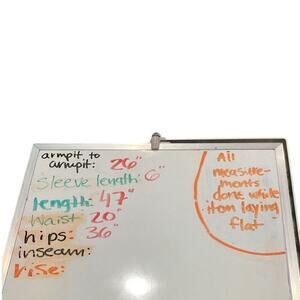 armpit to
armpit: 26"
Sleeve length: 6"
length: 47"
Waist: 20"
hips: 36"
inseam:
rise:
All
measure-
ments
done while
item laying
flat